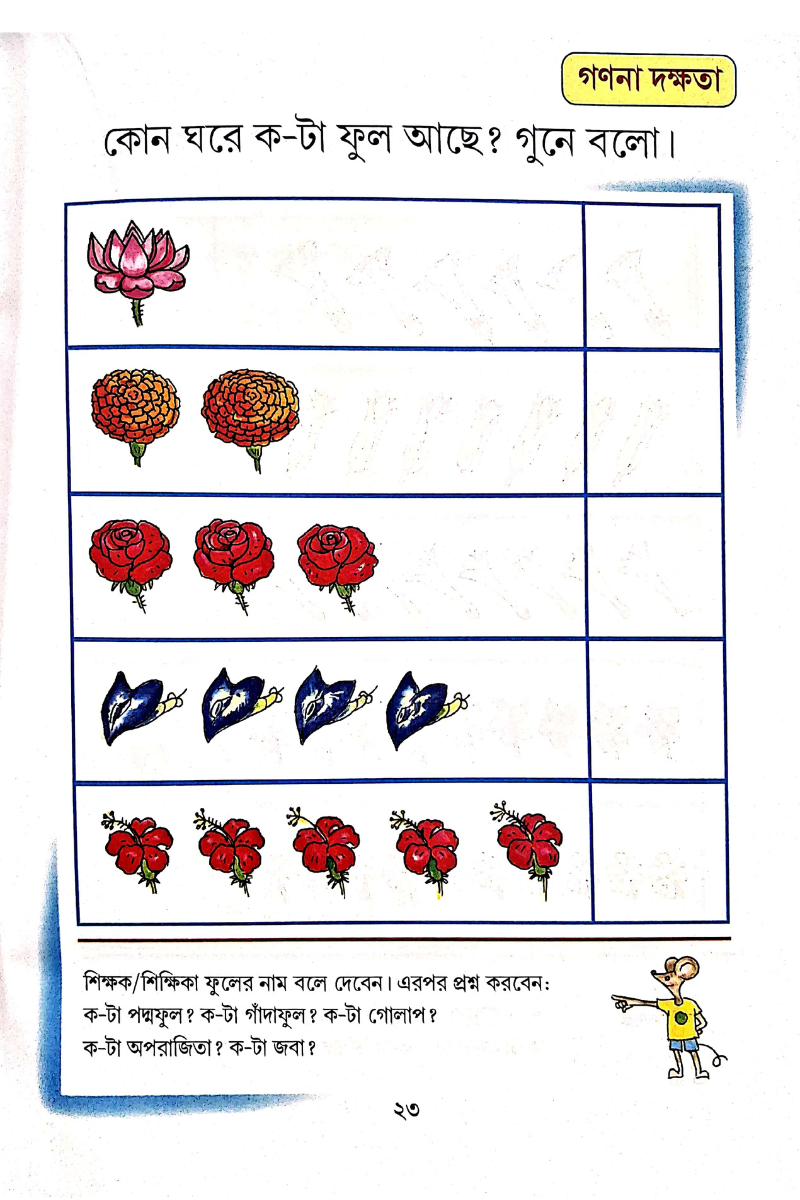 গণনা দক্ষতা
কোন ঘরে ক-টা ফুল আছে? গুনে বলো।
শিক্ষক/শিক্ষিকা ফুলের নাম বলে দেবেন। এরপর প্রশ্ন করবেন:
ক-টা পদ্মফুল? ক-টা গাঁদাফুল? ক-টা গোলাপ?
ক-টা অপরাজিতা? ক-টা জবা?
২৩